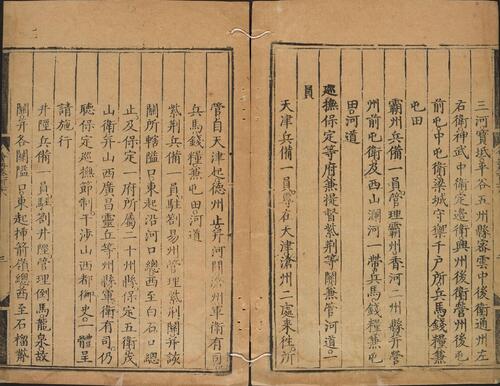 三河寶坻平谷五州縣密雲中後衛通州左
右衛神武中衛定邊衛興州後衛營州後屯
前屯中屯衛梁城守禦千戶所兵馬錢糧兼
屯田
霸州兵備一員管理霸州香河二州縣并營
州前屯衛及西山瀾河一帶兵馬錢糧兼屯
田河道
巡撫保定等府兼提督紫荊等關兼管河道一
員
天津兵備一員專在天津滄州二處來往所
管自天津起德州止并河間滄州軍衛有司
兵馬錢糧兼屯田河道
紫荊兵備一員駐劄易州管理紫荊關并該
關所轄隘口東起沿河口總西至白石口總
止及保定一府所屬二十州縣保定五衛茂
山衛并山西廣昌靈丘等州縣軍衛有司仍
聽保定巡撫節制干涉山西都御史一體呈
請施行
井陘兵備一員駐劄井陘管理倒馬龍泉故
關并各關隘口東起插箭嶺總西至石榴